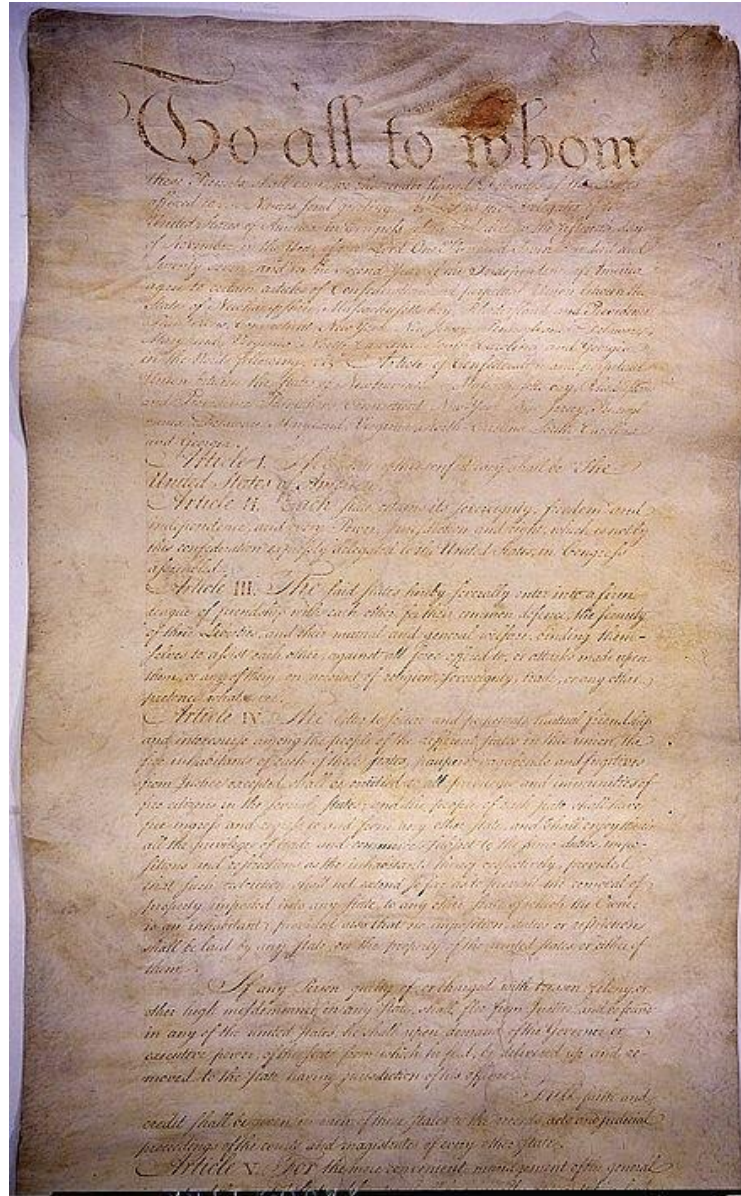 To all to whom
these Presents shall come, we the under signed Delegates of the States
affixed to our Names send greeting. Whereas the Delegates of the
United States of America in Congress assembled did on the fifteenth day
of November in the Year of our Lord One Thousand Seven Hundred and
Seventy seven, and in the Second Year of the Independence of America
agree to certain articles of Confederation and perpetual Union between the
States of Newhampshire, Massachusetts-bay, Rhodeisland and Providence
Plantations, Connecticut, New York, New Jersey, Pennsylvania, Delaware,
Maryland, Virginia, North-Carolina, South-Carolina, and Georgia
in the Words following, viz. Articles of Confederation and perpetual
Union between the States of Newhampshire, Massachusetts-bay, Rhodeisland
and Providence Plantations, Connecticut, New York, New Jersey, Pennsyl-
vania, Delaware, Maryland, Virginia, North-Carolina, South-Carolina
and Georgia.
Article I. The Stile of this confederacy shall be "The
United States of America."
Article II. Each state retains its sovereignty, freedom and
independence, and every Power, Jurisdiction and right, which is not by
this confederation expressly delegated to the United States, in Congress
assembled.
Article III. The said states hereby severally enter into a firm
league of friendship with each other, for their common defence, the security
of their Liberties, and their mutual and general welfare, binding them-
selves to assist each other, against all force offered to, or attacks made upon
them, or any of them, on account of religion, sovereignty, trade, or any other
pretence whatever.
Article IV. The better to secure and perpetuate mutual friendship
and intercourse among the people of the different states in this union, the
free inhabitants of each of these states, paupers, vagabonds and fugitives
from Justice excepted, shall be entitled to all privileges and immunities of
free citizens in the several states; and the people of each state shall have
free ingress and regress to and from any other state, and shall enjoy therein
all the privileges of trade and commerce, subject to the same duties, impo-
sitions and restrictions as the inhabitants thereof respectively, provided
that such restriction shall not extend so far as to prevent the removal of
property imported into any state, to any other state of which the Owner
is an inhabitant; provided also that no imposition, duties or restriction
shall be laid by any state, on the property of the united states, or either of
them.
If any Person guilty of, or charged with treason, felony, or
other high misdemeanor in any state, shall flee from Justice, and be found
in any of the united states, he shall upon demand of the Governor or
executive power, of the state from which he fled, be delivered up and re-
moved to the state having jurisdiction of his offence.
Full faith and
credit shall be given in each of these states to the records, acts and judicial
proceedings of the courts and magistrates of every other state.
Article V. For the more convenient management of the general